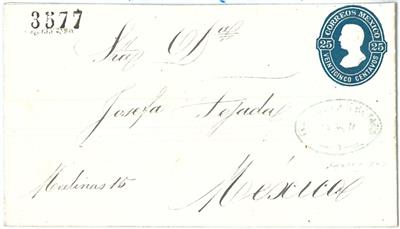 3577
CORREOS MEXICO
25 25
VEINTICINCO CENTAVOS
Sra Da
Josefa Tejada
Medinas 15
México